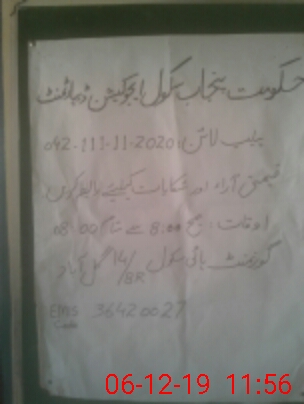 حکومت پنجاب سکول ایجوکیشن ڈیپارٹمنٹ
ہیلپ لائن: 042-111-11-2020
قیمتی آراء اور شکایات کیلئے رابطہ کریں
اوقات: صبح 8:00 سے شام 08:00
گورنمنٹ ہائی سکول 14/8R
EMIS Code 36420027
06-12-19 11:56